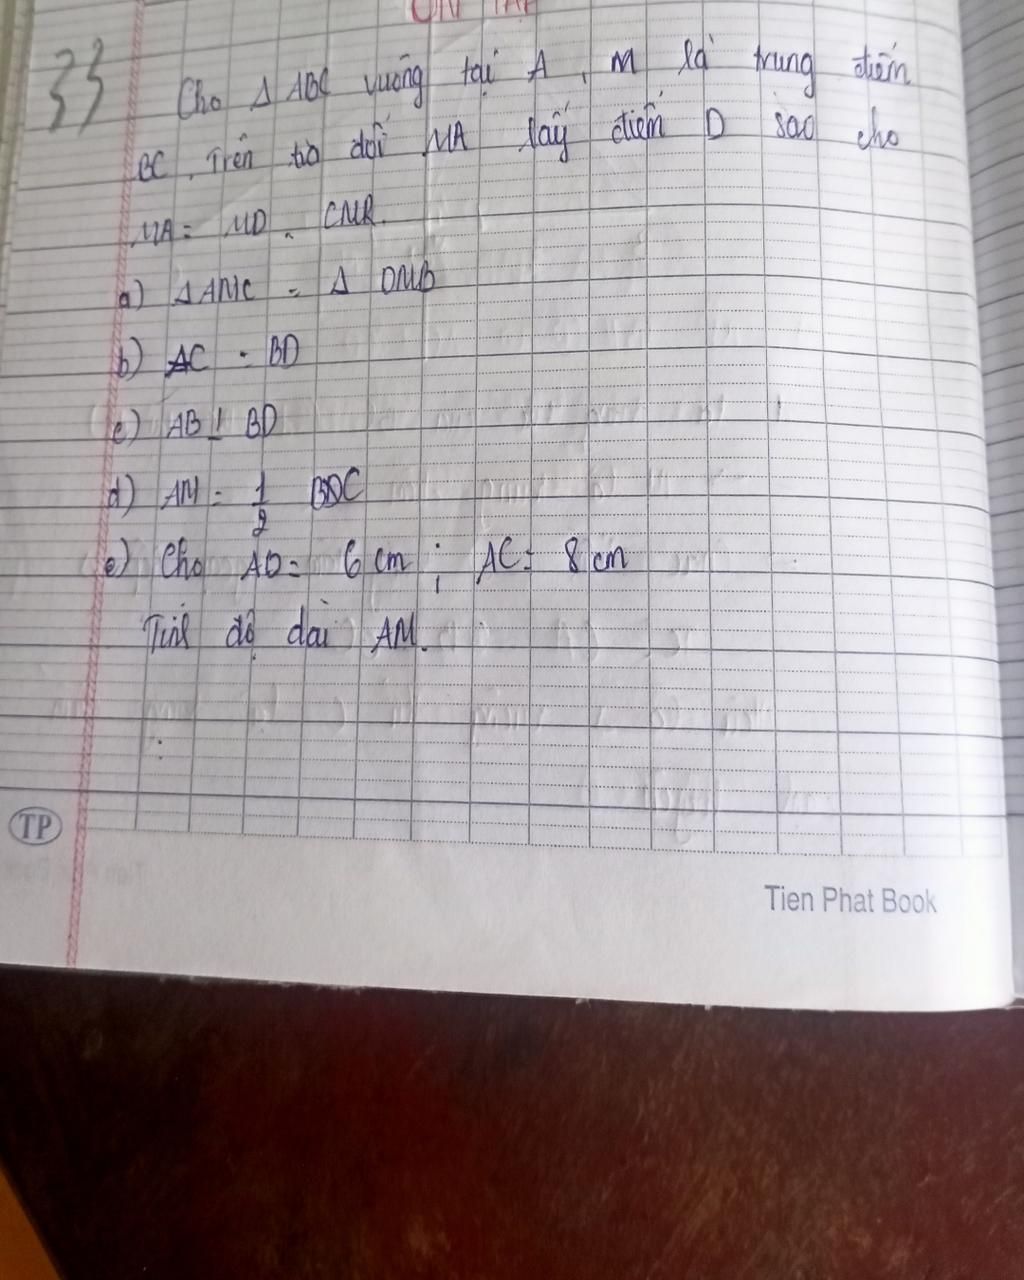 ÔN TẬP
33 Cho Δ ABC vuông tại A, M là trung điểm
BC. Trên tia đối MA lấy điểm D sao cho
MA = MD. CMR.
a) Δ AMC = Δ DMB
b) AC = BD
c) AB ⊥ BD
d) AM = 1/2 BC
e) Cho AB = 6 cm ; AC = 8 cm
Tính độ dài AM.
TP
Tien Phat Book